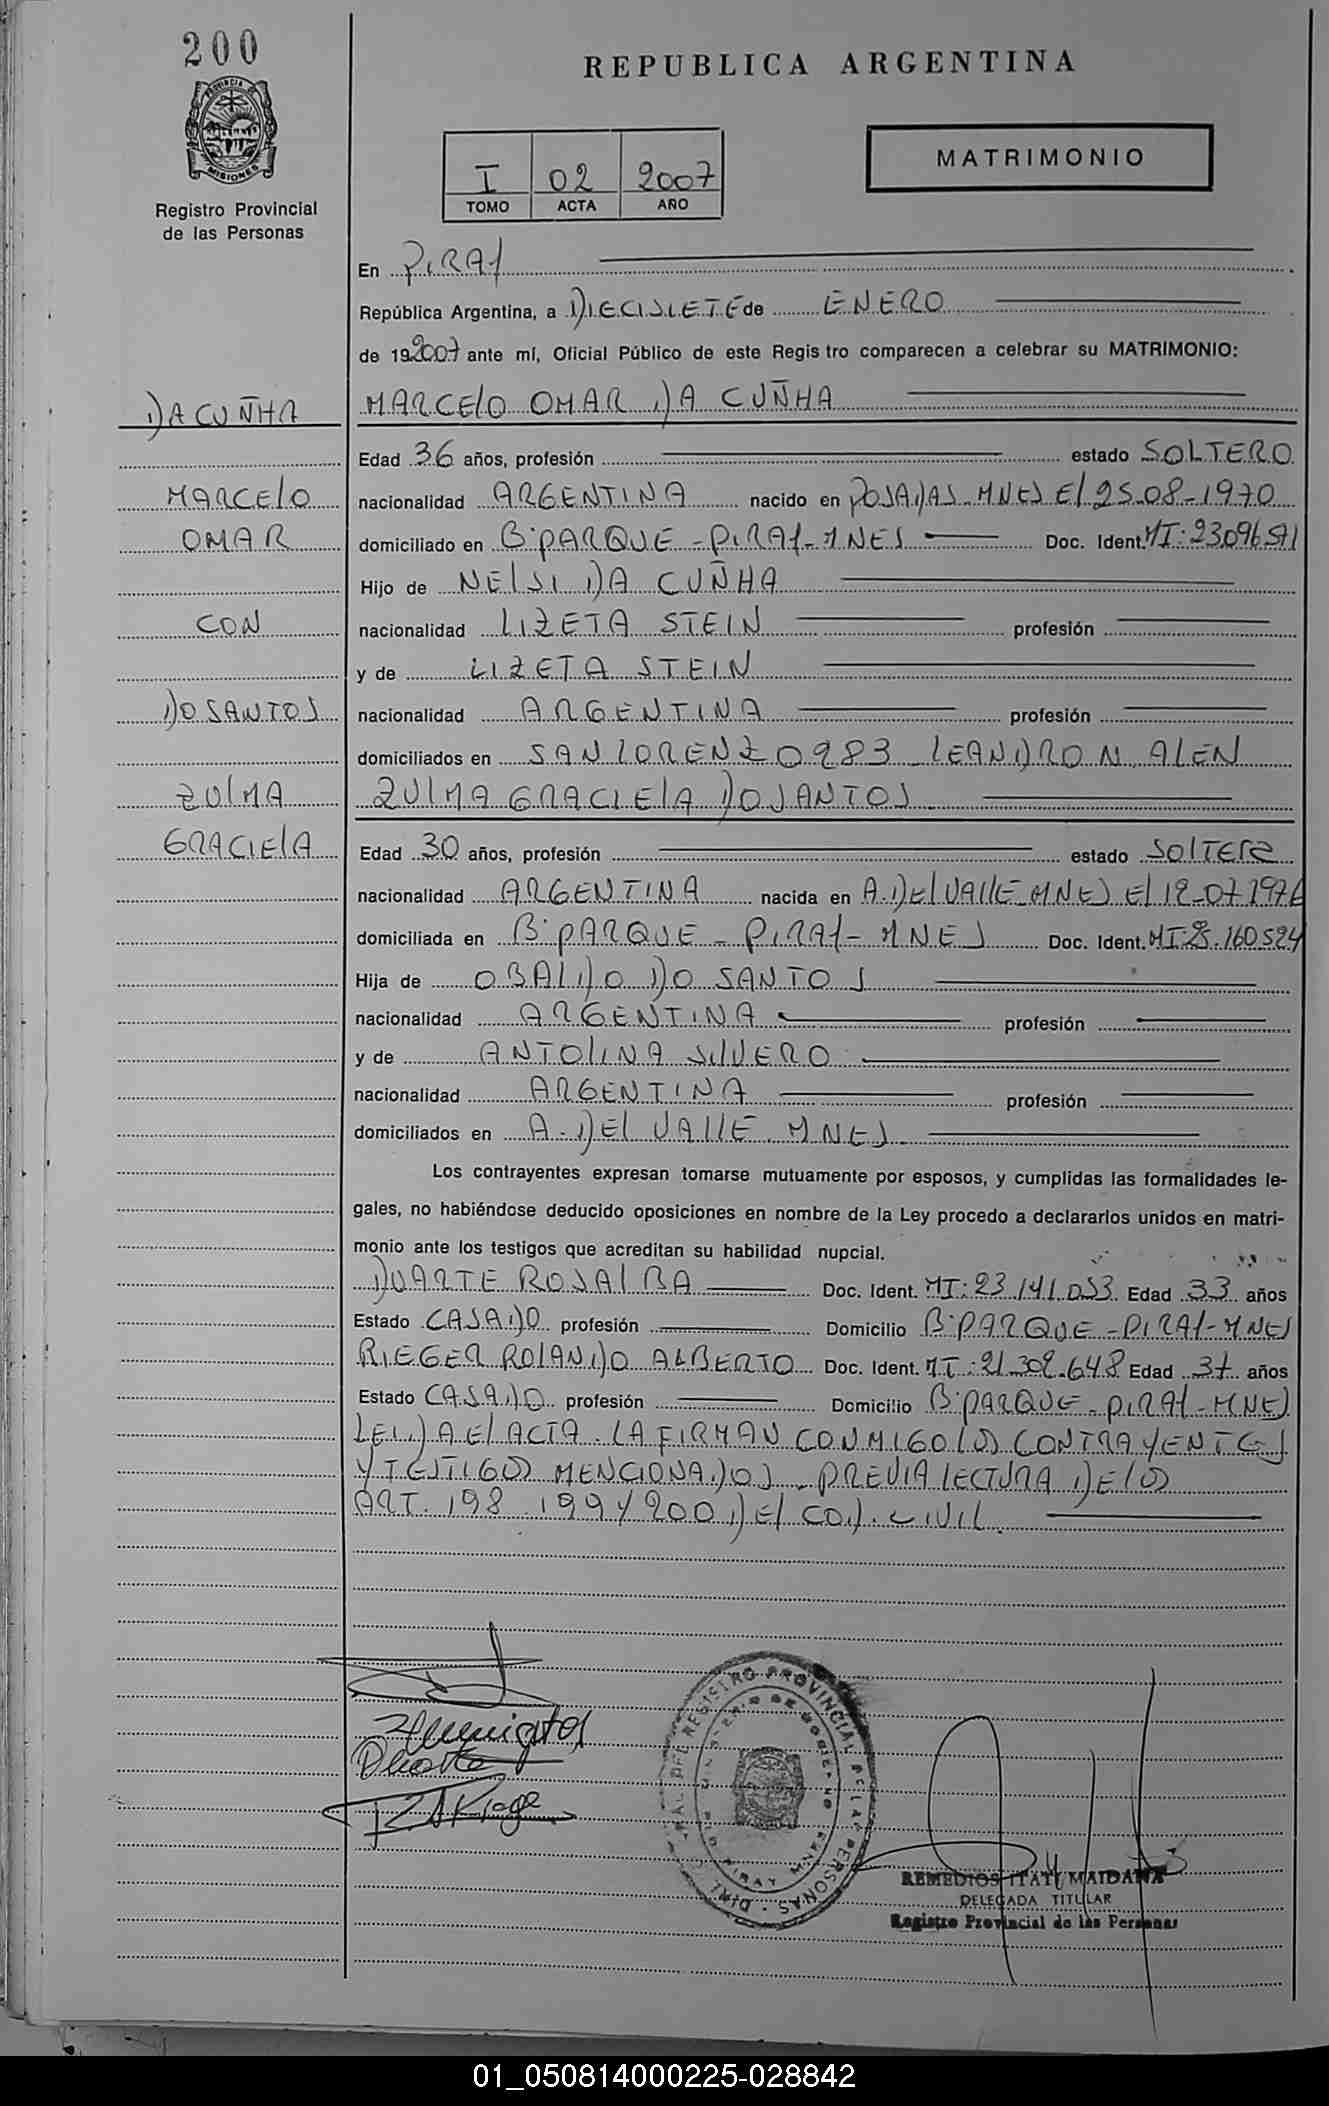 200
REPUBLICA ARGENTINA
PROVINCIA DE
MISIONES
MATRIMONIO
I 02 2007
TOMO ACTA AÑO
Registro Provincial
de las Personas
En PIRAY
República Argentina, a DIECISIETE de ENERO
de 192007 ante mí, Oficial Público de este Regis tro comparecen a celebrar su MATRIMONIO:
DA CUÑHA MARCELO OMAR DA CUÑHA
Edad 36 años, profesión estado SOLTERO
MARCELO nacionalidad ARGENTINA nacido en POSADAS-MNES El 25-08-1970
OMAR domiciliado en B: PARQUE - PIRAY-MNES Doc. Ident. MI: 23096571
Hijo de NELSI DA CUÑHA
CON nacionalidad LIZETA STEIN profesión
y de LIZETA STEIN
DO SANTOS nacionalidad ARGENTINA profesión
domiciliados en SAN LORENZO 983 - LEANDRO N. ALEN
ZULMA ZULMA GRACIELA DO SANTOS
GRACIELA Edad 30 años, profesión estado SOLTERA
nacionalidad ARGENTINA nacida en A. DEL VALLE-MNES El 12-07-1976
domiciliada en B: PARQUE - PIRAY - MNES Doc. Ident. MI 25.160.524
Hija de OBALDO DO SANTOS
nacionalidad ARGENTINA profesión
y de ANTOLINA SILVERO
nacionalidad ARGENTINA profesión
domiciliados en A. DEL VALLE. MNES
Los contrayentes expresan tomarse mutuamente por esposos, y cumplidas las formalidades le-
gales, no habiéndose deducido oposiciones en nombre de la Ley procedo a declararlos unidos en matri-
monio ante los testigos que acreditan su habilidad nupcial.
DUARTE ROSALBA Doc. Ident. MI: 23.141.053 Edad 33 años
Estado CASADO profesión Domicilio B: PARQUE - PIRAY-MNES
RIEGER ROLANDO ALBERTO Doc. Ident. MI: 21.302.648 Edad 37 años
Estado CASADO profesión Domicilio B: PARQUE - PIRAY - MNES
LEIDA EL ACTA. LA FIRMAN CONMIGO LOS CONTRAYENTES
Y TESTIGOS MENCIONADOS - PREVIA LECTURA DE LOS
ART. 198. 199 Y 200 DEL COD. CIVIL.
Duarte
REGISTRO PROVINCIAL DE LAS PERSONAS
MINISTERIO DE GOBIERNO
REMEDIOS ITATI MAIDANA
DELEGADA TITULAR
Registro Provincial de las Personas
01_050814000225-028842